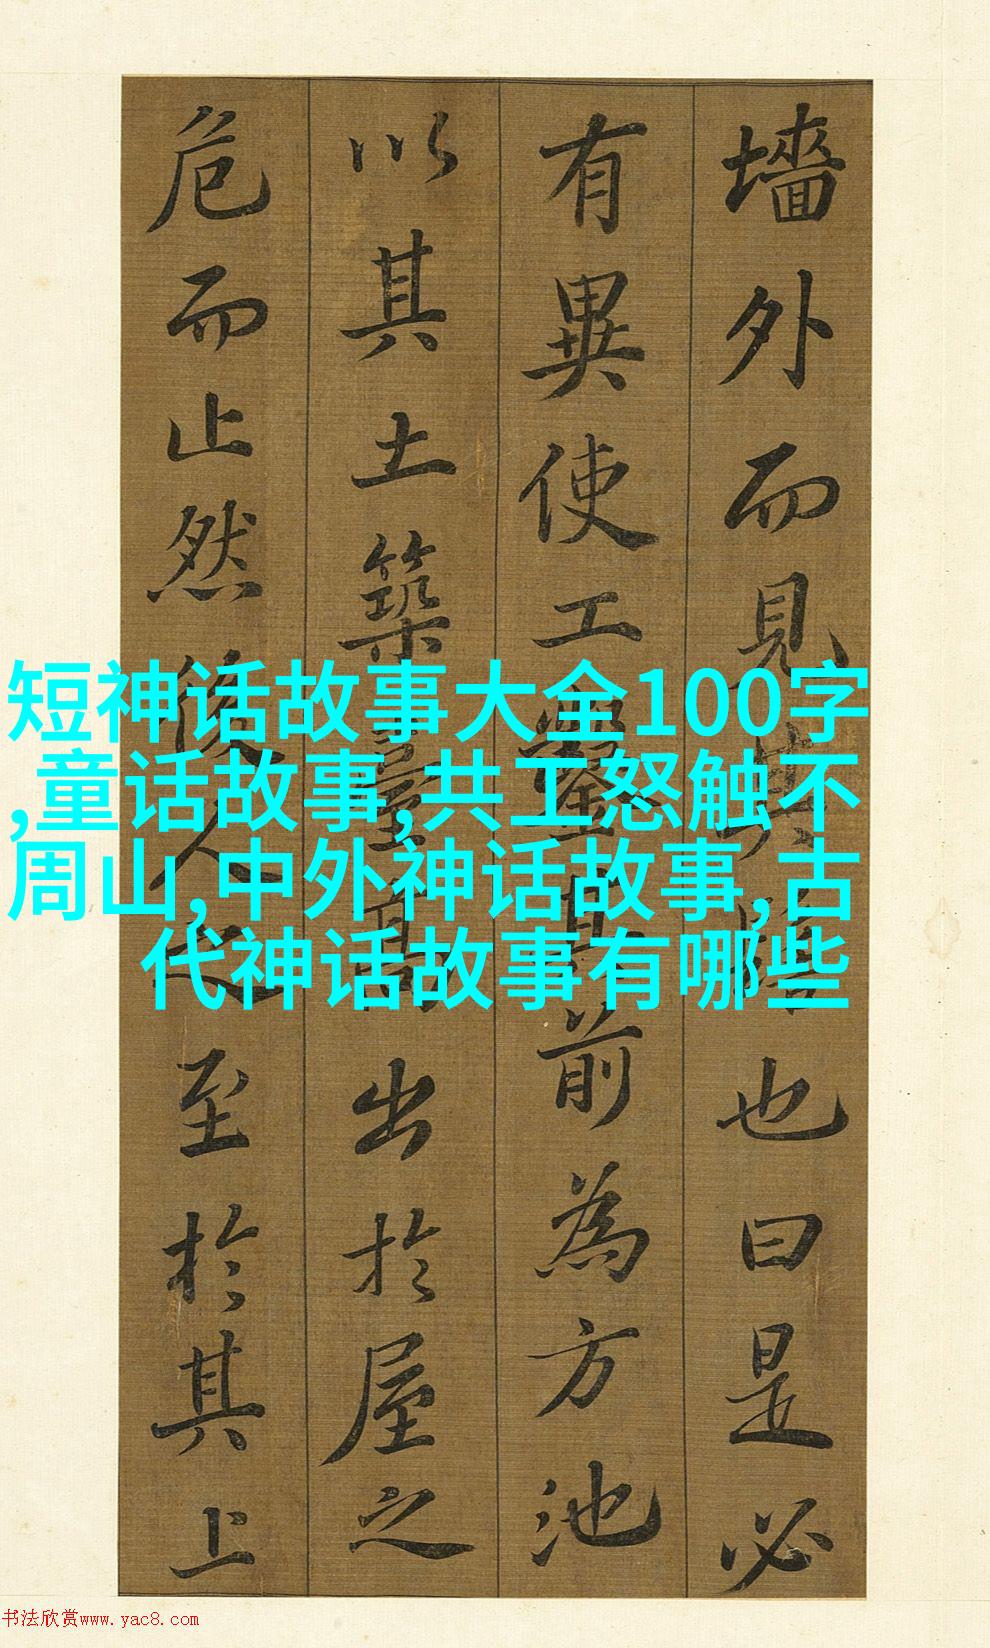 墻外而見其髻也曰是必
有異使工鑿其前為方池
以其土築臺高出於屋之
危而止然後人之至於其上
短神话故事大全100字
,童话故事,共工怒触不
周山,中外神话故事,古
代神话故事有哪些
书法欣赏www.yac8.com